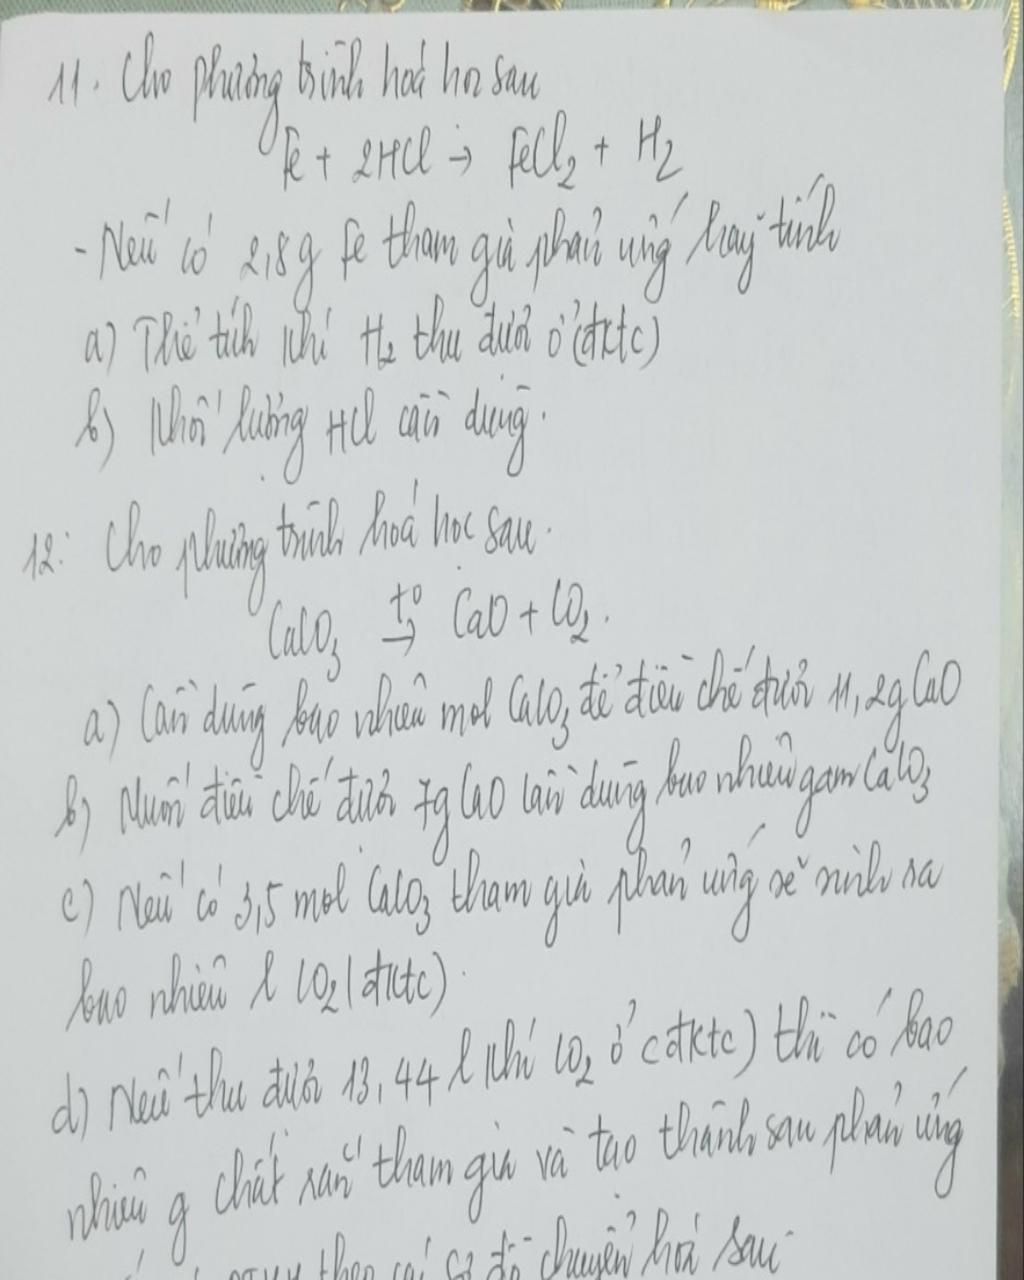 11. Cho phương trình hoá học sau
Fe + 2HCl → FeCl₂ + H₂
- Nếu có 2,8g Fe tham gia phản ứng hãy tính
a) Thể tích khí H₂ thu được ở (đktc)
b) Khối lượng HCl cần dùng.
12: Cho phương trình hoá học sau.
CaCO₃ →(t⁰) CaO + CO₂.
a) Cần dùng bao nhiêu mol CaCO₃ để điều chế được 11,2g CaO
b) Muốn điều chế được 7g CaO cần dùng bao nhiêu gam CaCO₃
c) Nếu có 3,5 mol CaCO₃ tham gia phản ứng sẽ sinh ra
bao nhiêu l CO₂ (đktc)
d) Nếu thu được 13,44 l khí CO₂ ở (đktc) thì có bao
nhiêu g chất rắn tham gia và tạo thành sau phản ứng
theo các sơ đồ chuyển hoá sau